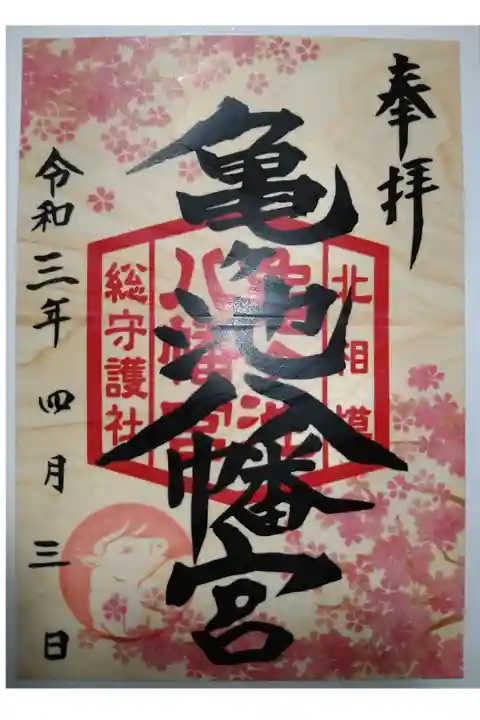 奉拝
北相模
亀ヶ池八幡宮
亀ヶ池八幡宮
総守護社
令和三年 四月 三日